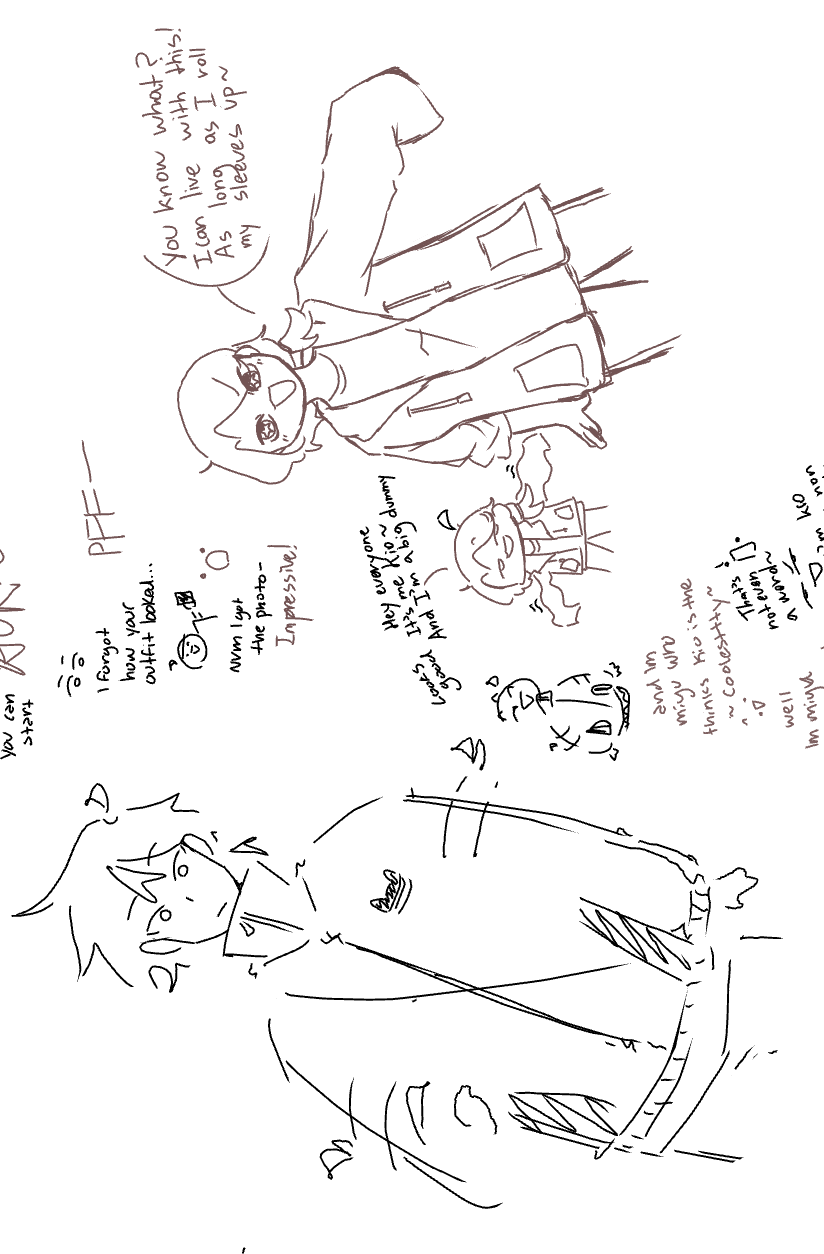 You know what?
I can live with this!
As long as I roll
my sleeves up~
PFF—
you can
start
I forgot
how your
outfit looked...
NVM I got
the photo-
Impressive!
Hey everyone
It's me Kio~
And I'm a big dummy
Looks
good
and Im
miyu who
thinks Kio is the
~Coolestttty~
That's
not even
a word~
Kio
well
Im miyu